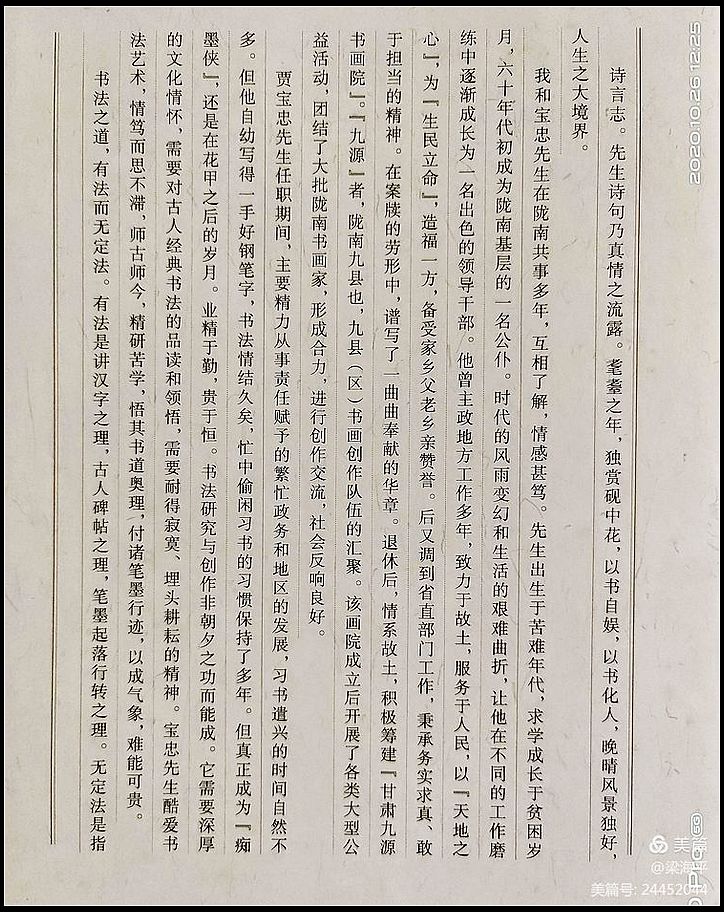 诗言志。先生诗句乃真情之流露。耄耋之年，独赏砚中花，以书自娱，以书化人，晚晴风景独好，
人生之大境界。
我和宝忠先生在陇南共事多年，互相了解，情感甚笃。先生出生于苦难年代，求学成长于贫困岁
月，六十年代初成为陇南基层的一名公仆。时代的风雨变幻和生活的艰难曲折，让他在不同的工作磨
练中逐渐成长为一名出色的领导干部。他曾主政地方工作多年，致力于故土，服务于人民，以『天地之
心』，为『生民立命』，造福一方，备受家乡父老乡亲赞誉。后又调到省直部门工作，秉承务实求真、敢
于担当的精神。在案牍的劳形中，谱写了一曲曲奉献的华章。退休后，情系故土，积极筹建『甘肃九源
书画院』。『九源』者，陇南九县也，九县（区）书画创作队伍的汇聚。该画院成立后开展了各类大型公
益活动，团结了大批陇南书画家，形成合力，进行创作交流，社会反响良好。
贾宝忠先生任职期间，主要精力从事责任赋予的繁忙政务和地区的发展，习书遣兴的时间自然不
多。但他自幼写得一手好钢笔字，书法情结久矣，忙中偷闲习书的习惯保持了多年。但真正成为『痴
墨侠』，还是在花甲之后的岁月。业精于勤，贵于恒。书法研究与创作非朝夕之功而能成。它需要深厚
的文化情怀，需要对古人经典书法的品读和领悟，需要耐得寂寞、埋头耕耘的精神。宝忠先生酷爱书
法艺术，情笃而思不滞，师古师今，精研苦学，悟其书道奥理，付诸笔墨行迹，以成气象，难能可贵。
书法之道，有法而无定法。有法是讲汉字之理，古人碑帖之理，笔墨起落行转之理。无定法是指
2020.10.26 12:25
美篇
@梁海平
美篇号: 24452044